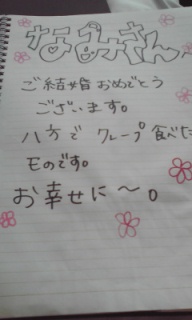 なるみさん
ご結婚おめでとう
ございます。
八方で クレープ 食べた
モのです。
お幸せに〜。